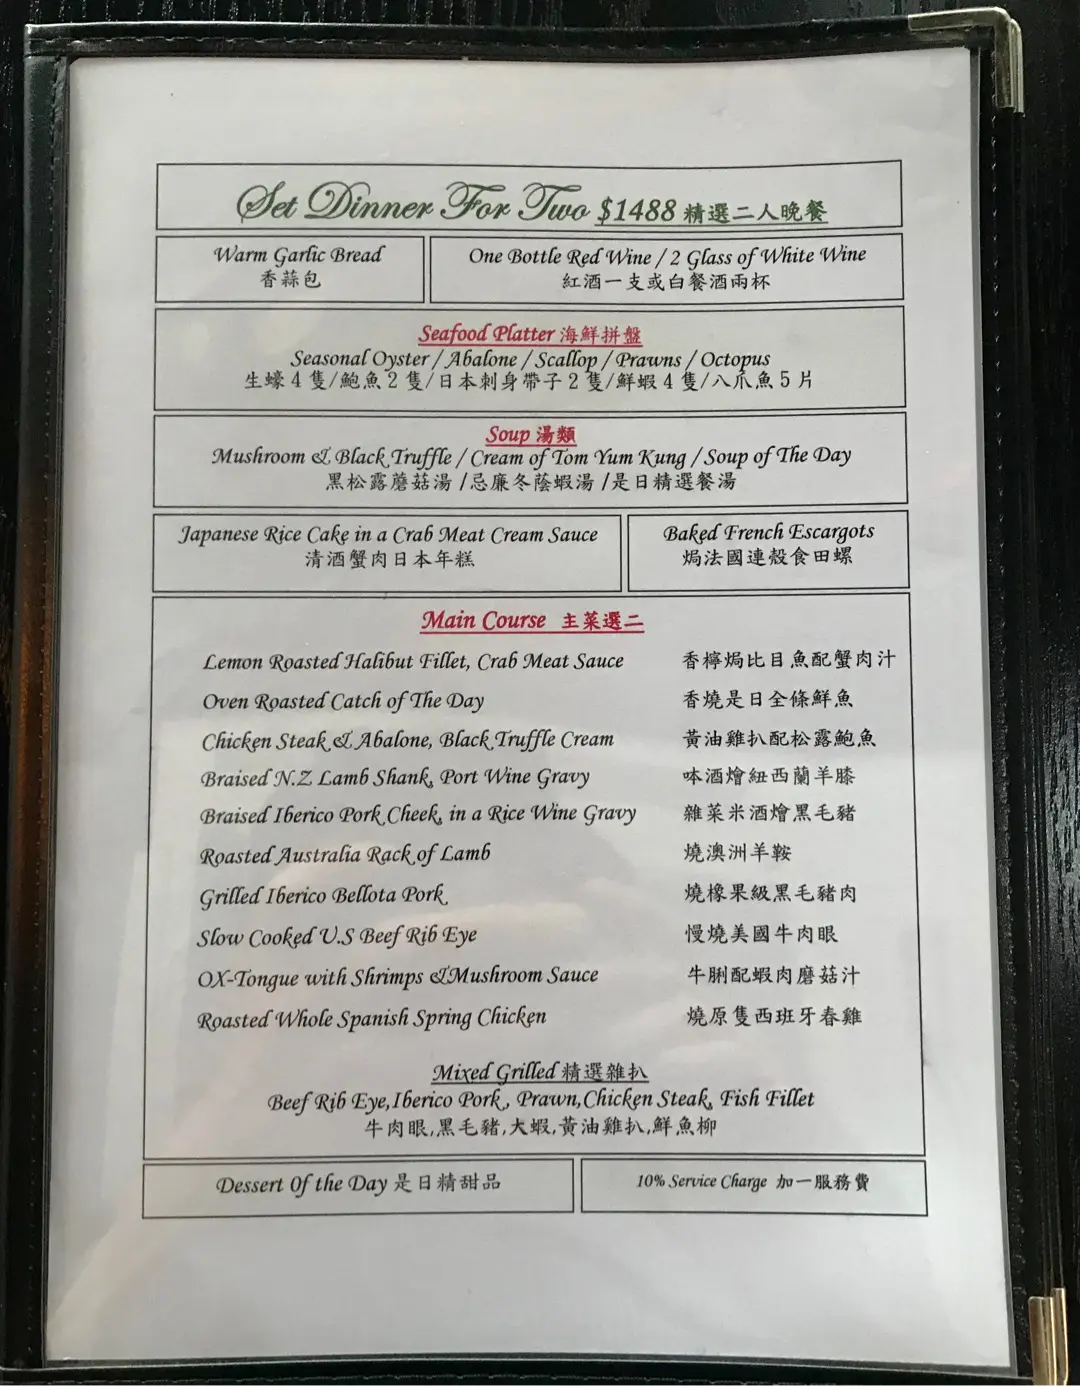 Set Dinner For Two $1488 精選二人晚餐
Warm Garlic Bread
香蒜包
One Bottle Red Wine / 2 Glass of White Wine
紅酒一支或白餐酒兩杯
Seafood Platter 海鮮拼盤
Seasonal Oyster / Abalone / Scallop / Prawns / Octopus
生蠔4隻/鮑魚2隻/日本刺身帶子2隻/鮮蝦4隻/八爪魚5片
Soup 湯類
Mushroom & Black Truffle / Cream of Tom Yum Kung / Soup of The Day
黑松露蘑菇湯 /忌廉冬蔭蝦湯 /是日精選餐湯
Japanese Rice Cake in a Crab Meat Cream Sauce
清酒蟹肉日本年糕
Baked French Escargots
焗法國連殼食田螺
Main Course 主菜選二
Lemon Roasted Halibut Fillet, Crab Meat Sauce 香檸焗比目魚配蟹肉汁
Oven Roasted Catch of The Day 香燒是日全條鮮魚
Chicken Steak & Abalone, Black Truffle Cream 黃油雞扒配松露鮑魚
Braised N.Z Lamb Shank, Port Wine Gravy 砵酒燴紐西蘭羊膝
Braised Iberico Pork Cheek, in a Rice Wine Gravy 雜菜米酒燴黑毛豬
Roasted Australia Rack of Lamb 燒澳洲羊鞍
Grilled Iberico Bellota Pork 燒橡果級黑毛豬肉
Slow Cooked U.S Beef Rib Eye 慢燒美國牛肉眼
OX-Tongue with Shrimps &Mushroom Sauce 牛脷配蝦肉蘑菇汁
Roasted Whole Spanish Spring Chicken 燒原隻西班牙春雞
Mixed Grilled 精選雜扒
Beef Rib Eye,Iberico Pork, Prawn,Chicken Steak, Fish Fillet
牛肉眼,黑毛豬,大蝦,黃油雞扒,鮮魚柳
Dessert Of the Day 是日精甜品
10% Service Charge 加一服務費